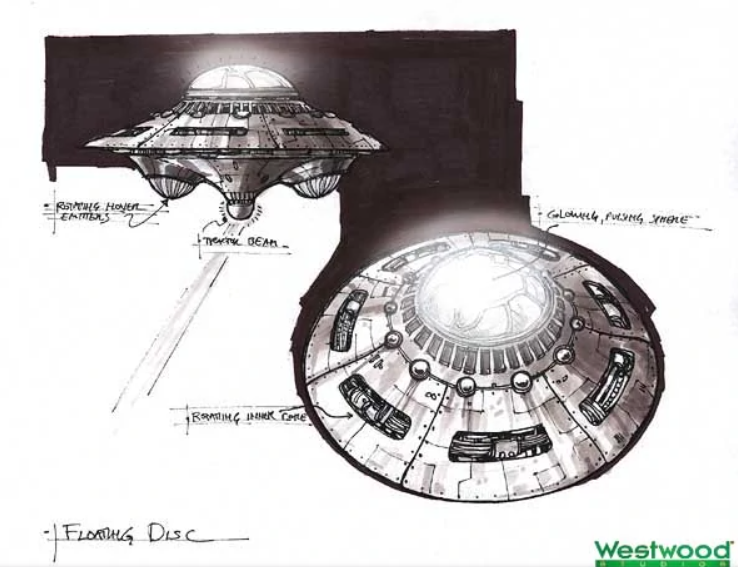 ROTATING HOVER
EMITTERS
TRACTOR BEAM
GLOWING, PULSING SPHERE
ROTATING INNER CORE
FLOATING DISC
Westwood
STUDIOS